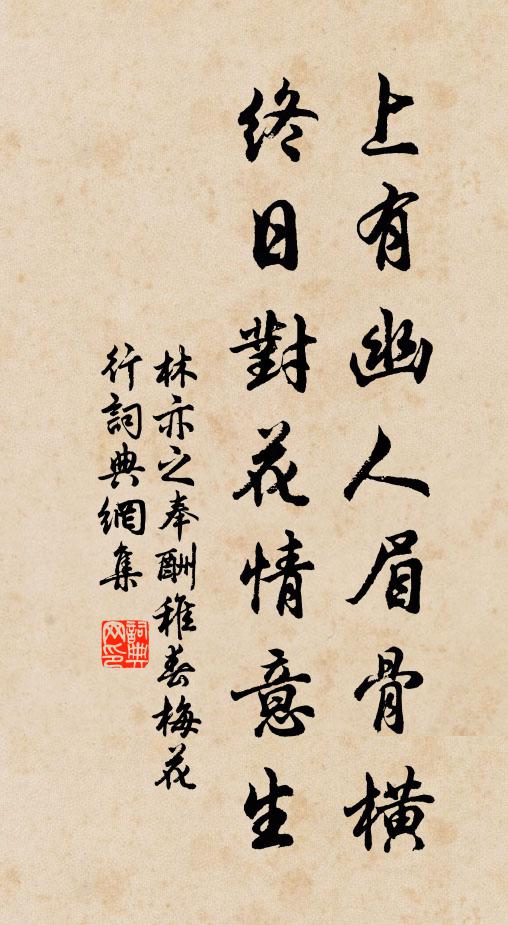 上有幽人眉骨橫
終日對花情意生
林亦之奉酬稚春梅花
行詞典網集
詞典網印